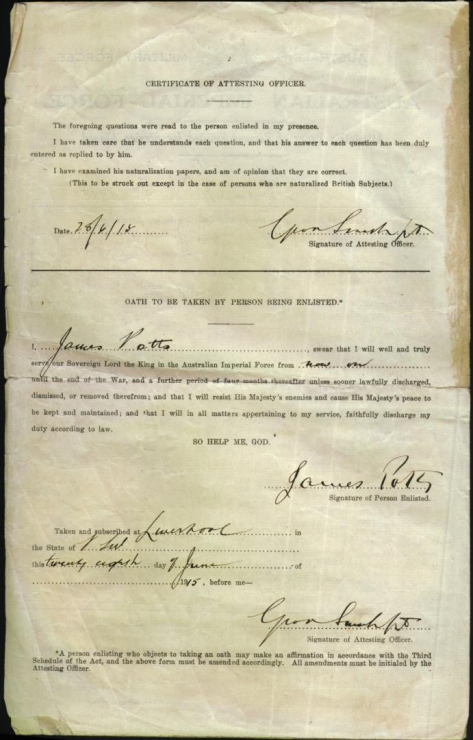 CERTIFICATE OF ATTESTING OFFICER.
The foregoing questions were read to the person enlisted in my presence.
I have taken care that he understands each question, and that his answer to each question has been duly
entered as replied to by him.
I have examined his naturalization papers, and am of opinion that they are correct.
(This to be struck out except in the case of persons who are naturalized British Subjects.)
Date
Signature of Attesting Officer.
OATH TO BE TAKEN BY PERSON BEING ENLISTED.*
I, James Potts, swear that I will well and truly
serve our Sovereign Lord the King in the Australian Imperial Force from now on
until the end of the War, and a further period of four months thereafter unless sooner lawfully discharged,
dismissed, or removed therefrom; and that I will resist His Majesty's enemies and cause His Majesty's peace to
be kept and maintained; and that I will in all matters appertaining to my service, faithfully discharge my
duty according to law.
SO HELP ME, GOD.
James Potts
Signature of Person Enlisted.
Taken and subscribed at Liverpool in
the State of
this twenty eighth day of June of
1915, before me—
Signature of Attesting Officer.
*A person enlisting who objects to taking an oath may make an affirmation in accordance with the Third
Schedule of the Act, and the above form must be amended accordingly. All amendments must be initialed by the
Attesting Officer.